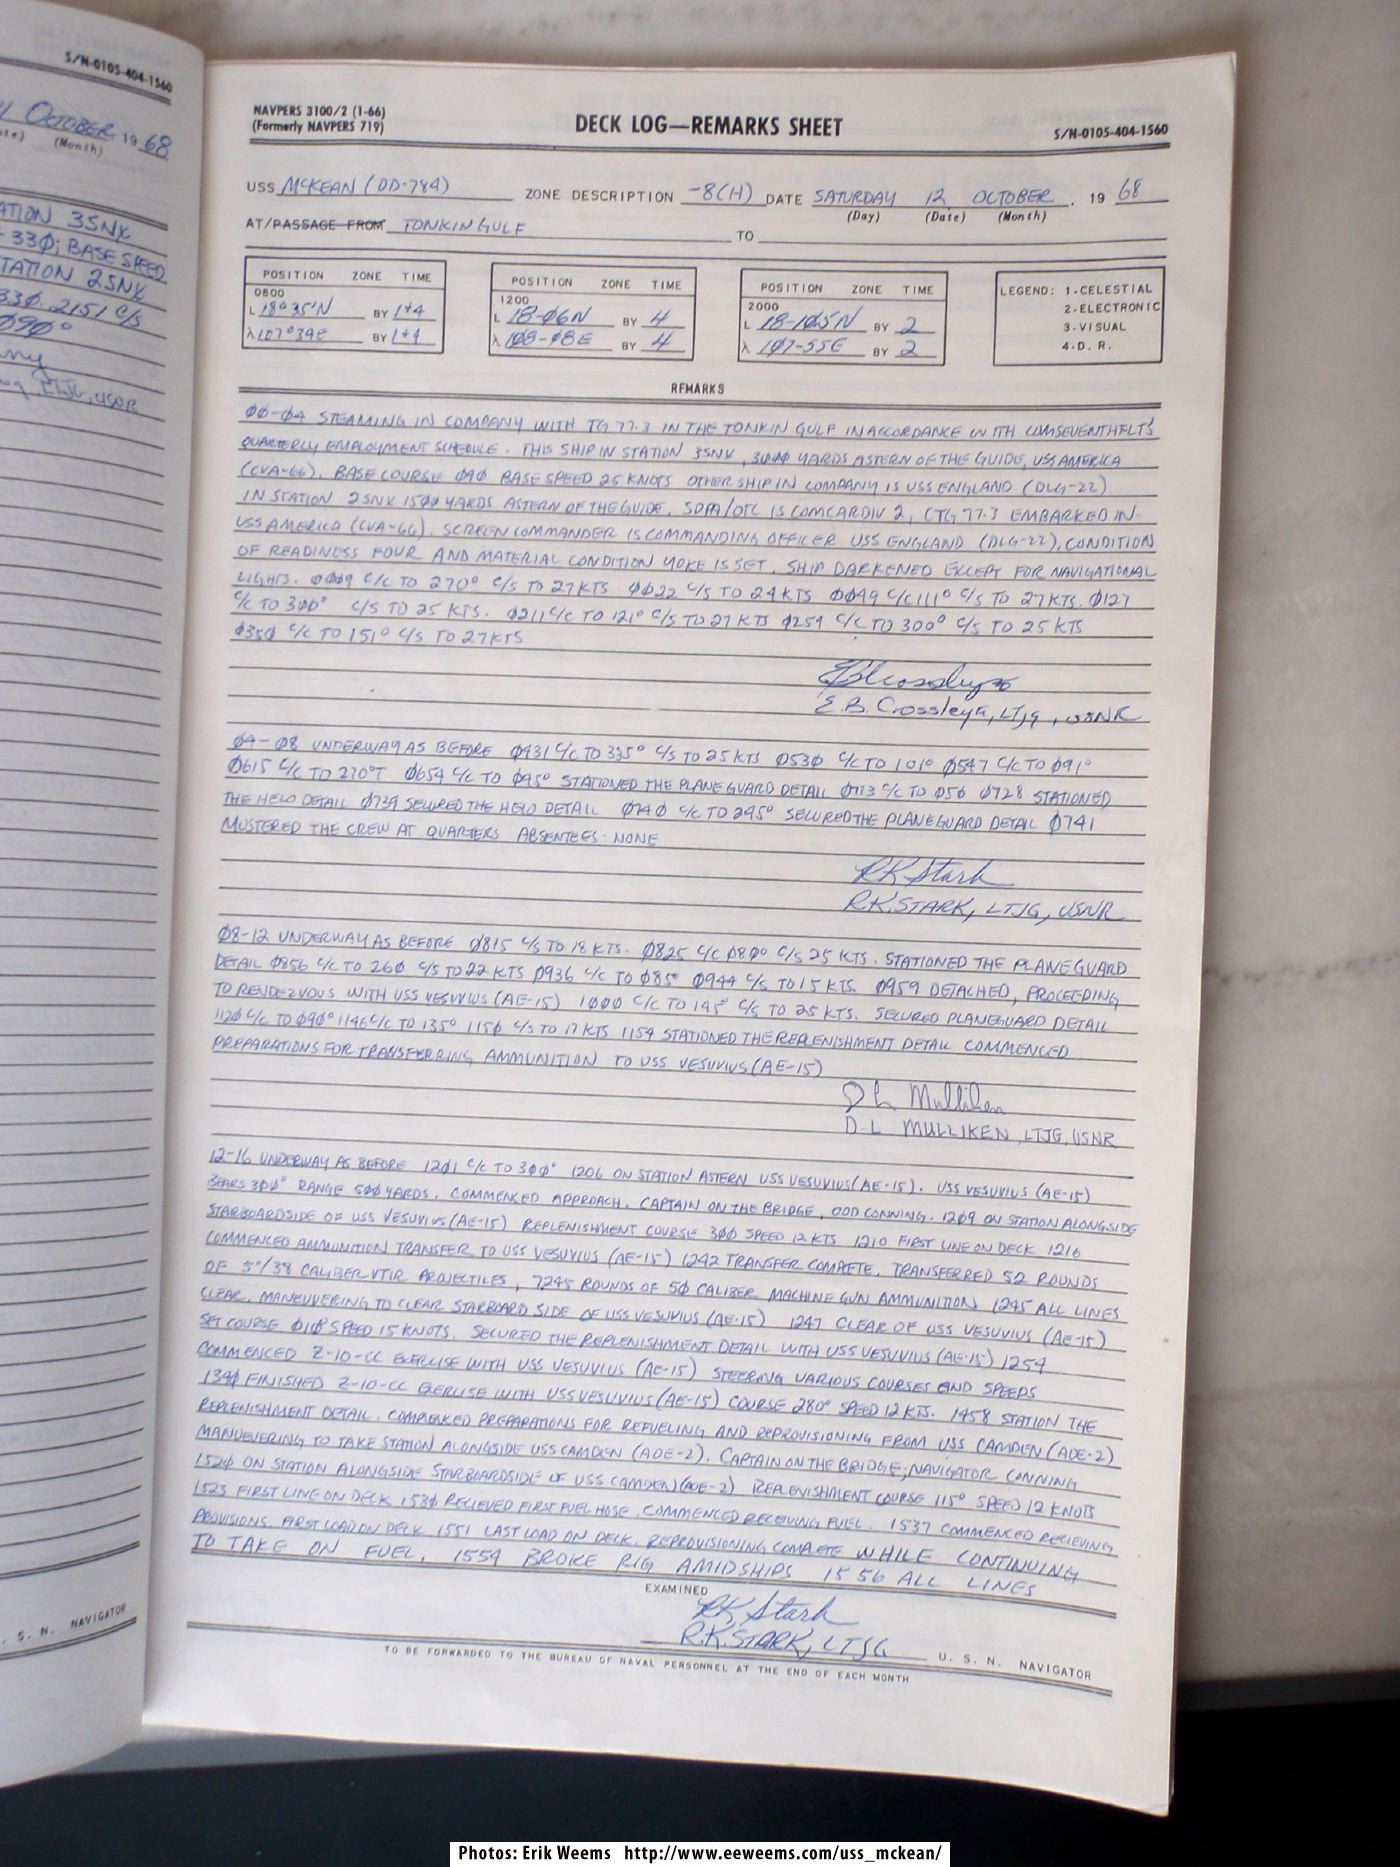 S/N-0105-404-1560
OCTOBER 19 68
(Month)
ATION 3SNX
330; BASE SPEED
TATION 2SNX
330. 2151 C/S
090°
LTJG, USNR
. S. N. NAVIGATOR
NAVPERS 3100/2 (1-66)
(Formerly NAVPERS 719)
DECK LOG—REMARKS SHEET
S/N-0105-404-1560
USS MCKEAN (DD-784) ZONE DESCRIPTION -8(H) DATE SATURDAY 12 OCTOBER , 19 68
(Day) (Date) (Month)
AT/PASSAGE FROM TONKIN GULF TO
POSITION ZONE TIME
0800
L 18°35'N BY 1+4
λ 107°39E BY 1+4
POSITION ZONE TIME
1200
L 18-06N BY 4
λ 108-08E BY 4
POSITION ZONE TIME
2000
L BY 2
λ 107-55E BY 2
LEGEND: 1-CELESTIAL
2-ELECTRONIC
3-VISUAL
4-D. R.
REMARKS
00-04 STEAMING IN COMPANY WITH TG 77.3 IN THE TONKIN GULF IN ACCORDANCE WITH COMSEVENTHFLT'S
QUARTERLY EMPLOYMENT SCHEDULE. THIS SHIP IN STATION 3SNX, 3000 YARDS ASTERN OF THE GUIDE, USS AMERICA
(CVA-66). BASE COURSE 090 BASE SPEED 25 KNOTS OTHER SHIP IN COMPANY IS USS ENGLAND (DLG-22)
IN STATION 2SNX 1500 YARDS ASTERN OF THE GUIDE. SOPA/OTC IS COMCARDIV 2, CTG 77.3 EMBARKED IN
USS AMERICA (CVA-66). SCREEN COMMANDER IS COMMANDING OFFICER USS ENGLAND (DLG-22). CONDITION
OF READINESS FOUR AND MATERIAL CONDITION YOKE IS SET. SHIP DARKENED EXCEPT FOR NAVIGATIONAL
LIGHTS. 0009 C/C TO 270° C/S TO 27 KTS 0022 C/S TO 24 KTS 0049 C/C 111° C/S TO 27 KTS. 0127
C/C TO 300° C/S TO 25 KTS. 0211 C/C TO 121° C/S TO 27 KTS 0259 C/C TO 300° C/S TO 25 KTS
0350 C/C TO 151° C/S TO 27 KTS
E. B. Crossley, LTjg, USNR
04-08 UNDERWAY AS BEFORE 0431 C/C TO 335° C/S TO 25 KTS 0530 C/C TO 101° 0547 C/C TO 091°
0615 C/C TO 270°T 0654 C/C TO 095° STATIONED THE PLANE GUARD DETAIL 0713 C/C TO 050 0728 STATIONED
THE HELO DETAIL 0739 SECURED THE HELO DETAIL 0740 C/C TO 295° SECURED THE PLANE GUARD DETAIL 0741
MUSTERED THE CREW AT QUARTERS ABSENTEES: NONE
RK Stark
R.K. STARK, LTJG, USNR
08-12 UNDERWAY AS BEFORE 0815 C/S TO 18 KTS. 0825 C/C 080° C/S 25 KTS. STATIONED THE PLANEGUARD
DETAIL 0856 C/C TO 260 C/S TO 22 KTS 0936 C/C TO 085° 0944 C/S TO 15 KTS 0959 DETACHED, PROCEEDING
TO RENDEZVOUS WITH USS VESUVIUS (AE-15) 1000 C/C TO 145° C/S TO 25 KTS. SECURED PLANEGUARD DETAIL
1120 C/C TO 090° 1146 C/C TO 135° 1150 C/S TO 17 KTS 1154 STATIONED THE REPLENISHMENT DETAIL COMMENCED
PREPARATIONS FOR TRANSFERRING AMMUNITION TO USS VESUVIUS (AE-15)
D L Mulliken
D. L MULLIKEN, LTJG, USNR
12-16 UNDERWAY AS BEFORE 1201 C/C TO 300° 1206 ON STATION ASTERN USS VESUVIUS (AE-15). USS VESUVIUS (AE-15)
BEARS 300° RANGE 500 YARDS. COMMENCED APPROACH. CAPTAIN ON THE BRIDGE, OOD CONNING. 1209 ON STATION ALONGSIDE
STARBOARDSIDE OF USS VESUVIUS (AE-15) REPLENISHMENT COURSE 300 SPEED 12 KTS 1210 FIRST LINE ON DECK 1216
COMMENCED AMMUNITION TRANSFER TO USS VESUVIUS (AE-15) 1242 TRANSFER COMPLETE. TRANSFERRED 52 ROUNDS
OF 5"/38 CALIBER VTIR PROJECTILES, 7245 ROUNDS OF 50 CALIBER MACHINE GUN AMMUNITION 1245 ALL LINES
CLEAR. MANEUVERING TO CLEAR STARBOARD SIDE OF USS VESUVIUS (AE-15) 1247 CLEAR OF USS VESUVIUS (AE-15)
SET COURSE 010 SPEED 15 KNOTS. SECURED THE REPLENISHMENT DETAIL WITH USS VESUVIUS (AE-15) 1254
COMMENCED Z-10-CC EXERCISE WITH USS VESUVIUS (AE-15) STEERING VARIOUS COURSES AND SPEEDS
1340 FINISHED Z-10-CC EXERCISE WITH USS VESUVIUS (AE-15) COURSE 280° SPEED 12 KTS. 1458 STATION THE
REPLENISHMENT DETAIL. COMMENCED PREPARATIONS FOR REFUELING AND REPROVISIONING FROM USS CAMDEN (AOE-2)
MANUEVERING TO TAKE STATION ALONGSIDE USS CAMDEN (AOE-2). CAPTAIN ON THE BRIDGE; NAVIGATOR CONNING
1520 ON STATION ALONGSIDE STARBOARDSIDE OF USS CAMDEN (AOE-2) REPLENISHMENT COURSE 115° SPEED 12 KNOTS
1523 FIRST LINE ON DECK 1530 RECIEVED FIRST FUEL HOSE. COMMENCED RECEIVING FUEL. 1537 COMMENCED RECIEVING
PROVISIONS. FIRST LOAD ON DECK 1551 LAST LOAD ON DECK. REPROVISIONING COMPLETE WHILE CONTINUING
TO TAKE ON FUEL. 1554 BROKE RIG AMIDSHIPS 1556 ALL LINES
EXAMINED
RK Stark
R.K. STARK, LTJG U. S. N. NAVIGATOR
TO BE FORWARDED TO THE BUREAU OF NAVAL PERSONNEL AT THE END OF EACH MONTH
Photos: Erik Weems http://www.eeweems.com/uss_mckean/